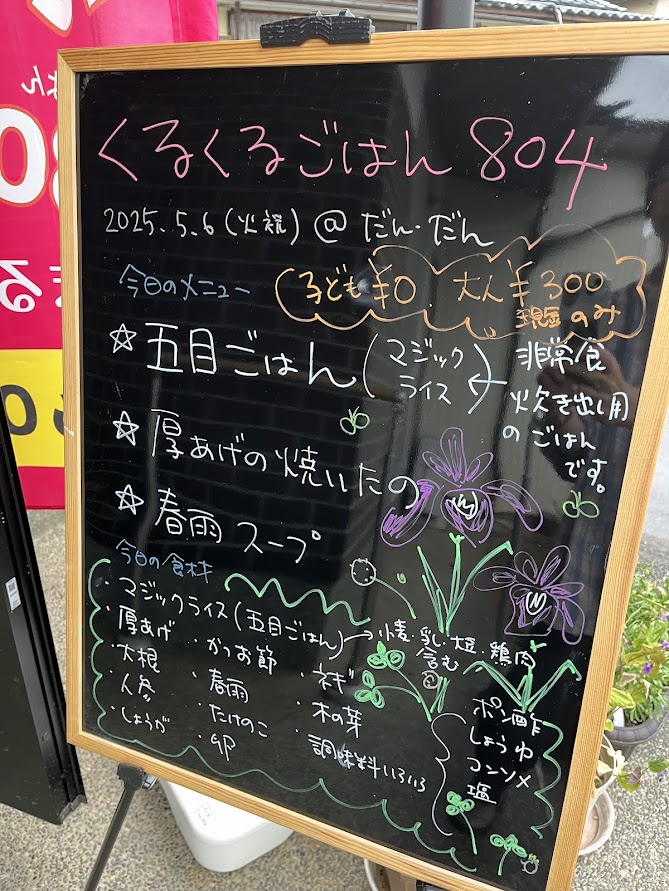 くるくるごはん 804
2025.5.6(火祝)@だん・だん
今日のメニュー
子ども¥0 大人¥300
現金のみ
☆五目ごはん(マジックライス)
非常食
炊き出し用
のごはん
です。
☆厚あげの焼いたの
☆春雨スープ
今日の食材
・マジックライス(五目ごはん)→小麦・乳・大豆・鶏肉
含む
・厚あげ ・かつお節 ・ネギ
・大根 ・春雨 ・木の芽
・人参 ・たけのこ ・調味料いろいろ
・しょうが ・卵
ポン酢
しょうゆ
コンソメ
塩